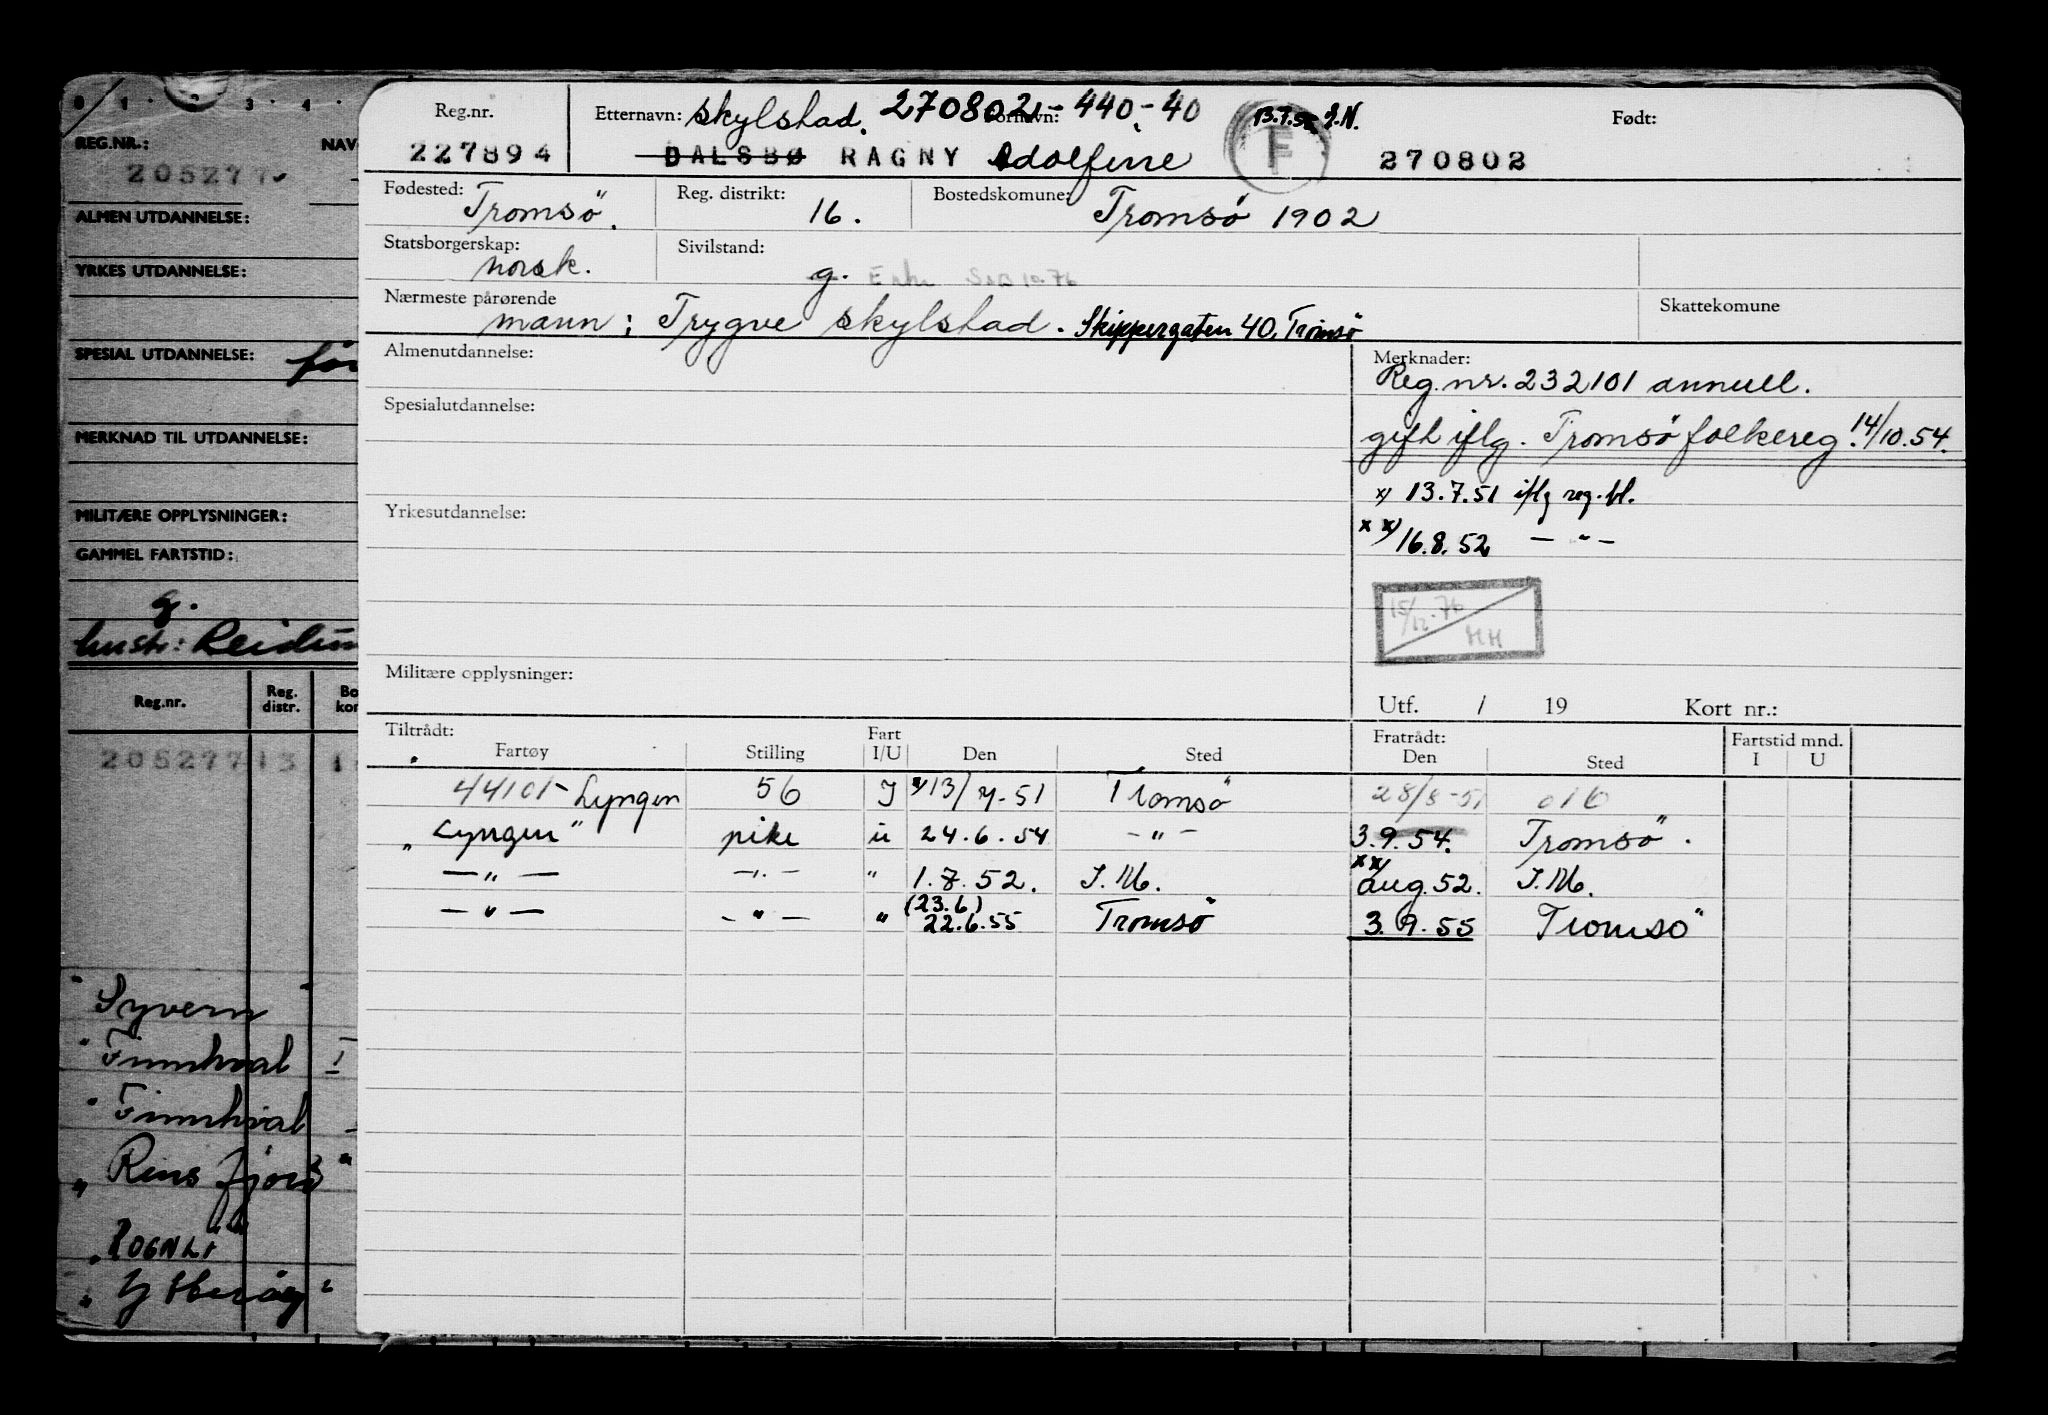 Reg.nr. Etternavn: Skylstad. 270802 - 440 - 40 Fornavn: 13.7.51 Født:
227894 DALSBØ RAGNY Adolfine F 270802
Fødested: Tromsö. Reg. distrikt: 16. Bostedskomune: Tromsö 1902
Statsborgerskap: norsk. Sivilstand: g. Enke 10.76
Nærmeste pårørende Skattekomune
mann: Trygve Skylstad. Skippergaten 40, Tromsö
Almenutdannelse: Merknader:
Reg.nr. 232101 annull.
Spesialutdannelse: gift iflg. Tromsö folkereg. 14/10.54.
x/ 13.7.51 iflg reg.bl.
Yrkesutdannelse: xx/ 16.8.52 — " —
15/12-76 HH
Militære opplysninger:
Utf. / 19 Kort nr.:
Tiltrådt: Fart Fratrådt: Fartstid mnd.
Fartøy Stilling I/U Den Sted Den Sted I U
44101- Lyngen 56 I x/13/7-51 Tromsö 28/8-51 016
"Lyngen" pike u 24.6.54 — " — 3.9.54. Tromsö.
— " — — " — " 1.7.52. I.M. xx/ aug.52. I.M.
— " — — " — " (23.6) 22.6.55 Tromsö 3.9.55 Tromsö
0 1 2 3 4
REG.NR.: NAV
205277
ALMEN UTDANNELSE:
YRKES UTDANNELSE:
SPESIAL UTDANNELSE:
MERKNAD TIL UTDANNELSE:
MILITÆRE OPPLYSNINGER:
GAMMEL FARTSTID:
g.
hustr: Reidun
Reg.nr. Reg. distr. Bo kor
205277 13 1
"Syvern"
"Finnhval I
"Finnhval
"Rens fjord"
"ROGNLI"